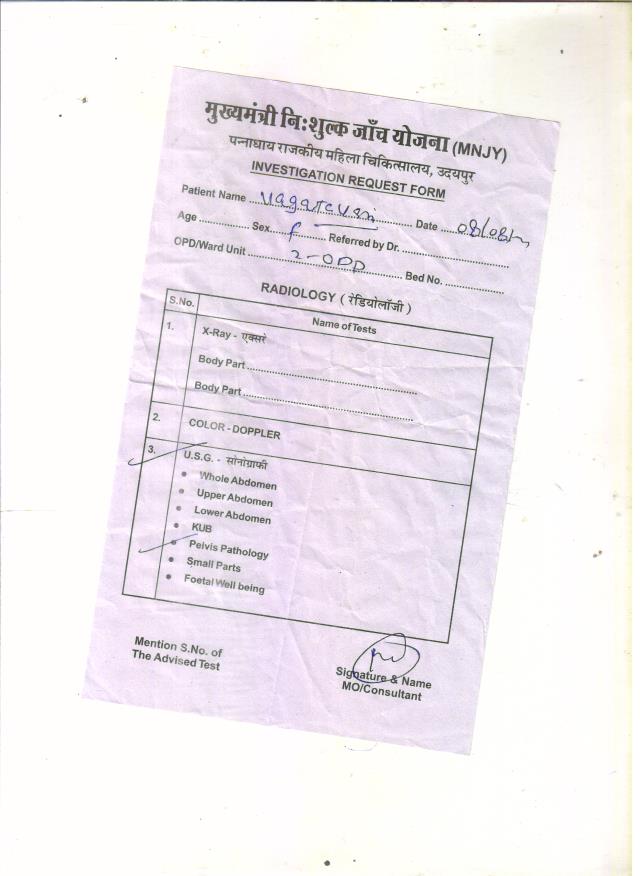 मुख्यमंत्री निःशुल्क जाँच योजना (MNJY)
पन्नाधाय राजकीय महिला चिकित्सालय, उदयपुर
INVESTIGATION REQUEST FORM
Patient Name ........ Date ........
Age ........ Sex F ........ Referred by Dr. ........
OPD/Ward Unit 2-OPD ........ Bed No. ........
RADIOLOGY ( रेडियोलॉजी )
S.No. Name of Tests
1. X-Ray - एक्सरे
Body Part ........
Body Part ........
2. COLOR - DOPPLER
3. U.S.G. - सोनोग्राफी
• Whole Abdomen
• Upper Abdomen
• Lower Abdomen
• KUB
• Pelvis Pathology
• Small Parts
• Foetal Well being
Mention S.No. of
The Advised Test
Signature & Name
MO/Consultant